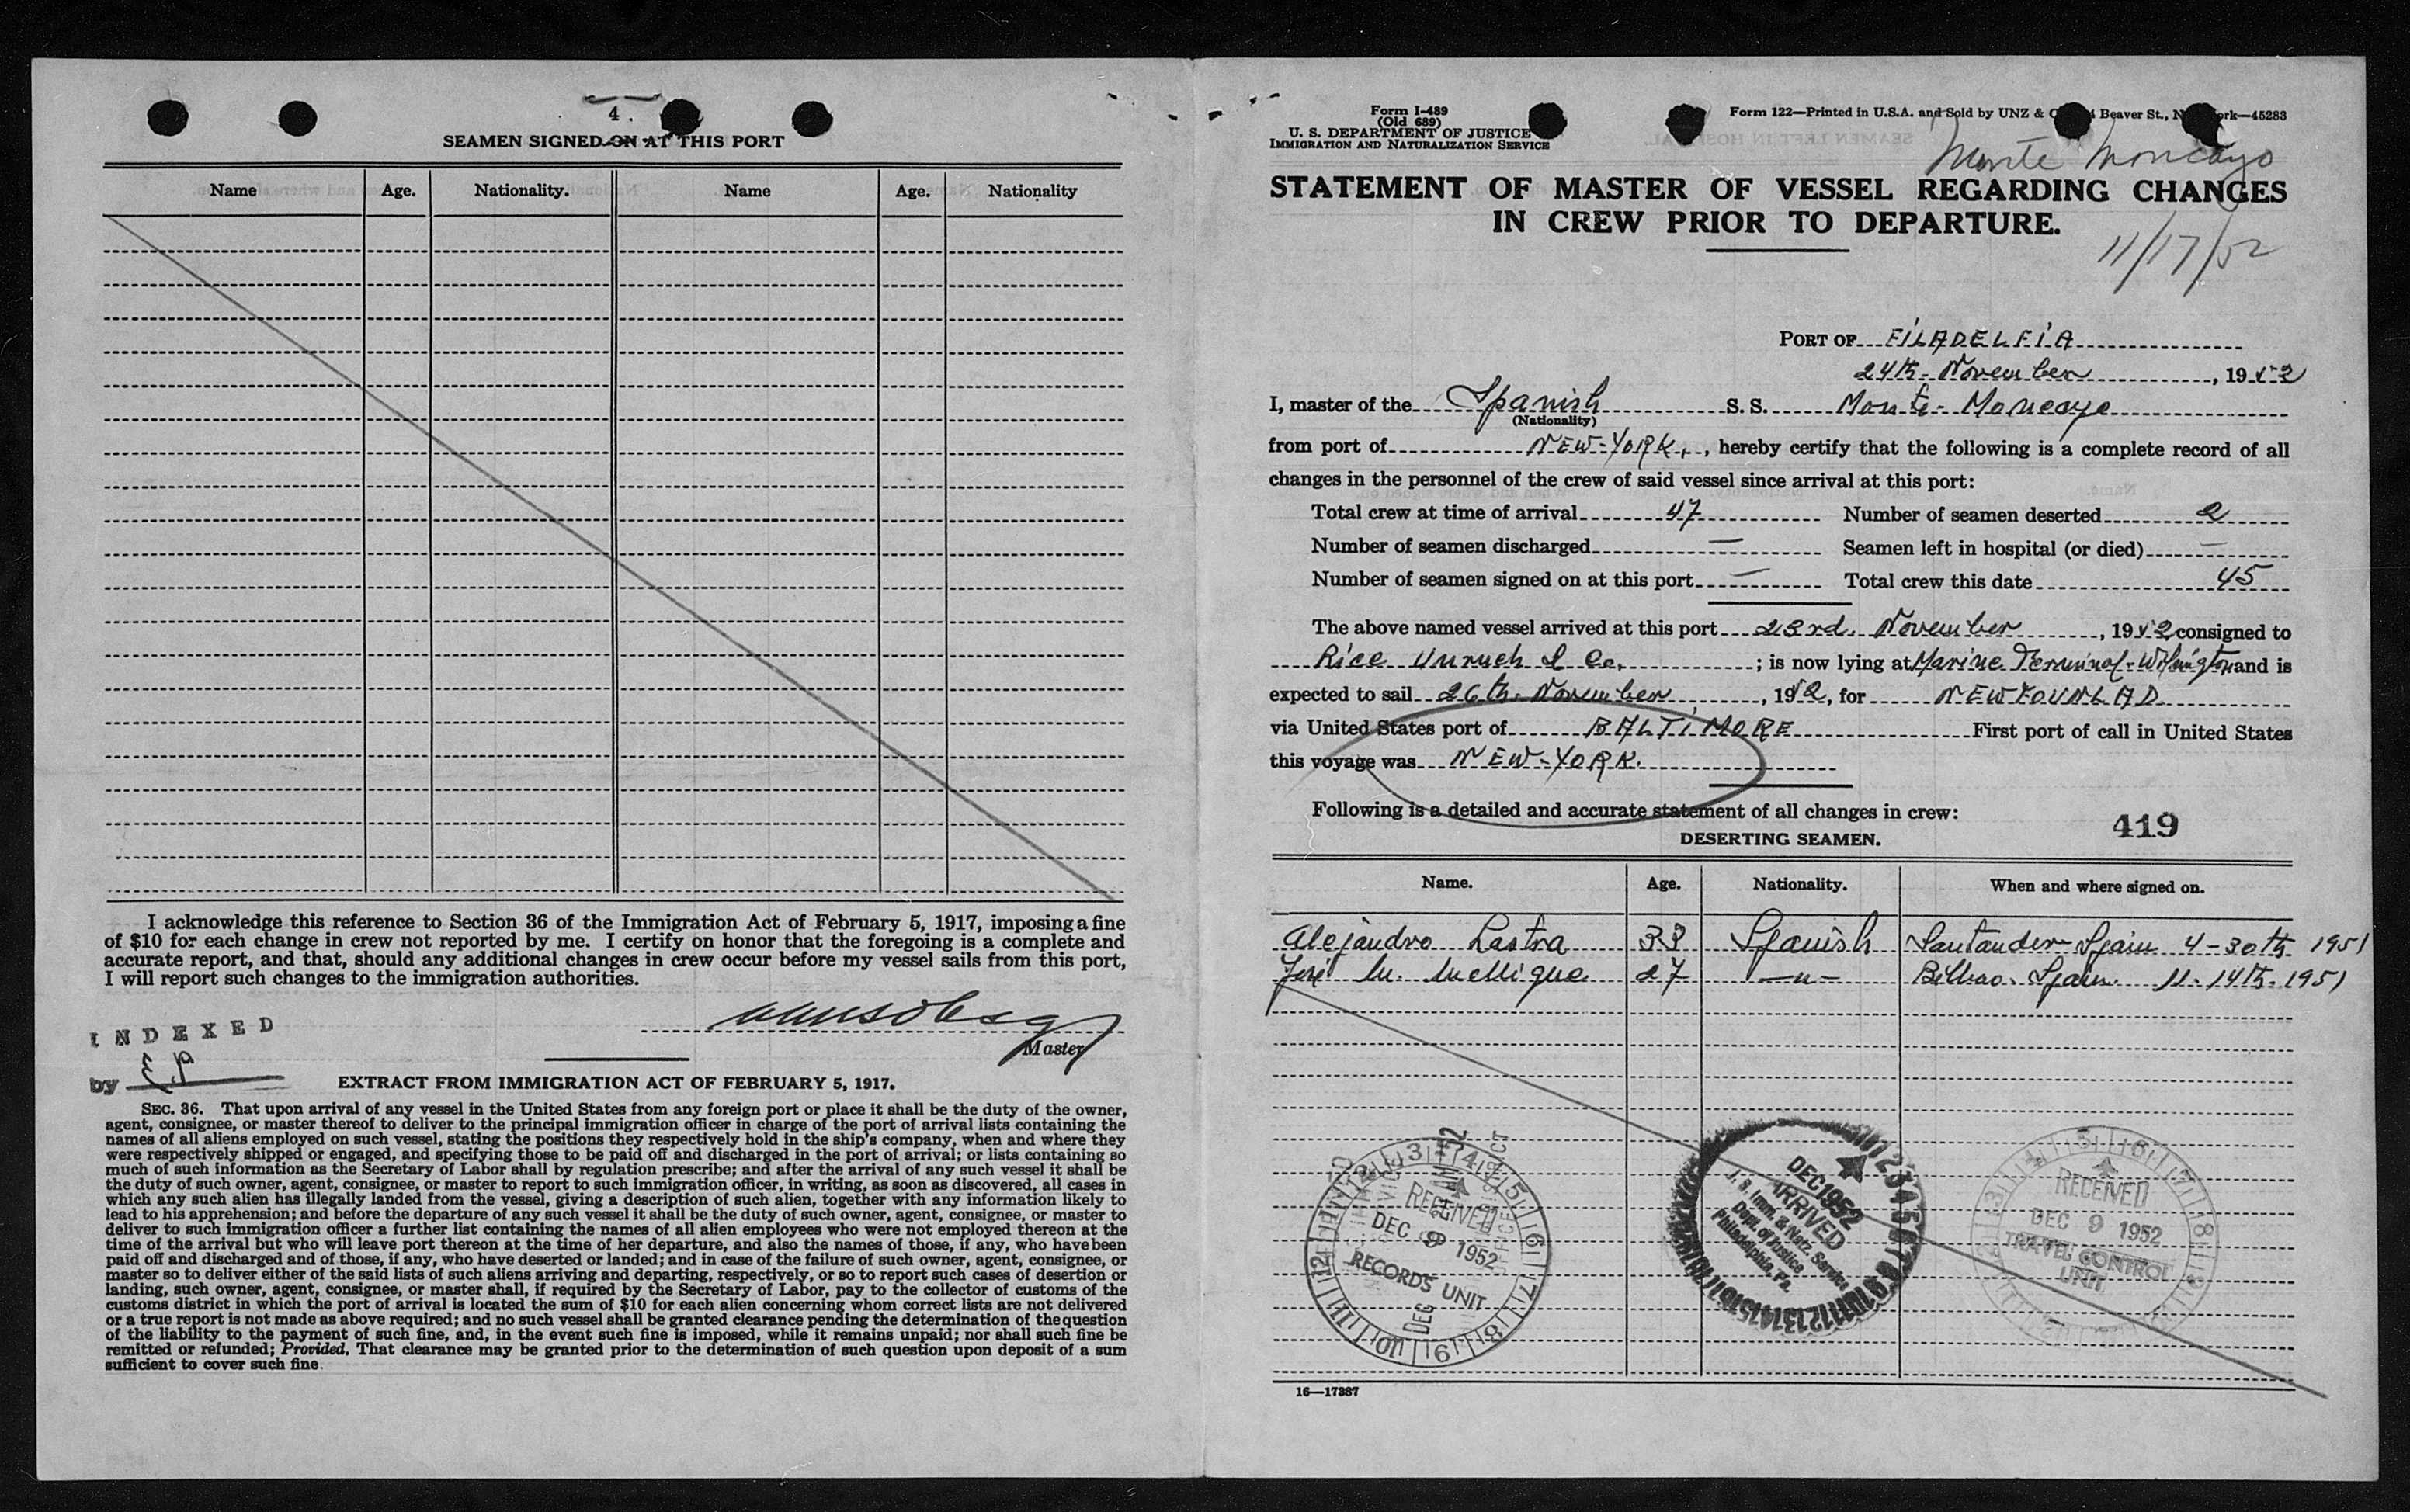 4.
SEAMEN SIGNED ON AT THIS PORT
Name Age. Nationality. Name Age. Nationality
I acknowledge this reference to Section 36 of the Immigration Act of February 5, 1917, imposing a fine
of $10 for each change in crew not reported by me. I certify on honor that the foregoing is a complete and
accurate report, and that, should any additional changes in crew occur before my vessel sails from this port,
I will report such changes to the immigration authorities.
Master
INDEXED
by
EXTRACT FROM IMMIGRATION ACT OF FEBRUARY 5, 1917.
SEC. 36. That upon arrival of any vessel in the United States from any foreign port or place it shall be the duty of the owner,
agent, consignee, or master thereof to deliver to the principal immigration officer in charge of the port of arrival lists containing the
names of all aliens employed on such vessel, stating the positions they respectively hold in the ship's company, when and where they
were respectively shipped or engaged, and specifying those to be paid off and discharged in the port of arrival; or lists containing so
much of such information as the Secretary of Labor shall by regulation prescribe; and after the arrival of any such vessel it shall be
the duty of such owner, agent, consignee, or master to report to such immigration officer, in writing, as soon as discovered, all cases in
which any such alien has illegally landed from the vessel, giving a description of such alien, together with any information likely to
lead to his apprehension; and before the departure of any such vessel it shall be the duty of such owner, agent, consignee, or master to
deliver to such immigration officer a further list containing the names of all alien employees who were not employed thereon at the
time of the arrival but who will leave port thereon at the time of her departure, and also the names of those, if any, who have been
paid off and discharged and of those, if any, who have deserted or landed; and in case of the failure of such owner, agent, consignee, or
master so to deliver either of the said lists of such aliens arriving and departing, respectively, or so to report such cases of desertion or
landing, such owner, agent, consignee, or master shall, if required by the Secretary of Labor, pay to the collector of customs of the
customs district in which the port of arrival is located the sum of $10 for each alien concerning whom correct lists are not delivered
or a true report is not made as above required; and no such vessel shall be granted clearance pending the determination of the question
of the liability to the payment of such fine, and, in the event such fine is imposed, while it remains unpaid; nor shall such fine be
remitted or refunded; Provided, That clearance may be granted prior to the determination of such question upon deposit of a sum
sufficient to cover such fine.
Form I-489
(Old 689)
U. S. DEPARTMENT OF JUSTICE
IMMIGRATION AND NATURALIZATION SERVICE
Form 122—Printed in U.S.A. and Sold by UNZ & Beaver St., ork—45283
Monte Moncayo
STATEMENT OF MASTER OF VESSEL REGARDING CHANGES
IN CREW PRIOR TO DEPARTURE.
11/17/52
PORT OF FILADELFIA
24th. November, 1952
I, master of the Spanish S. S. Monte-Moncayo
(Nationality)
from port of NEW-YORK., hereby certify that the following is a complete record of all
changes in the personnel of the crew of said vessel since arrival at this port:
Total crew at time of arrival 47 Number of seamen deserted 2
Number of seamen discharged — Seamen left in hospital (or died) —
Number of seamen signed on at this port — Total crew this date 45
The above named vessel arrived at this port 23rd. November, 1952 consigned to
Rice Unruch & Co.; is now lying at Marine Terminal-Wilmington and is
expected to sail 26th. November, 1952, for NEWFOUNLAD
via United States port of BALTIMORE First port of call in United States
this voyage was NEW-YORK.
Following is a detailed and accurate statement of all changes in crew:
419
DESERTING SEAMEN.
Name. Age. Nationality. When and where signed on.
Alejandro Lastra 33 Spanish Santander-Spain 4-30th 1951
José M. Mellique 27 —"— Bilbao. Spain. 11-14th. 1951
RECEIVED
DEC 9 1952
RECORDS UNIT
DEC 1952
ARRIVED
U. S. Imm. & Natz. Service
Dept. of Justice
Philadelphia, Pa.
RECEIVED
DEC 9 1952
TRAVEL CONTROL
UNIT
16—17387